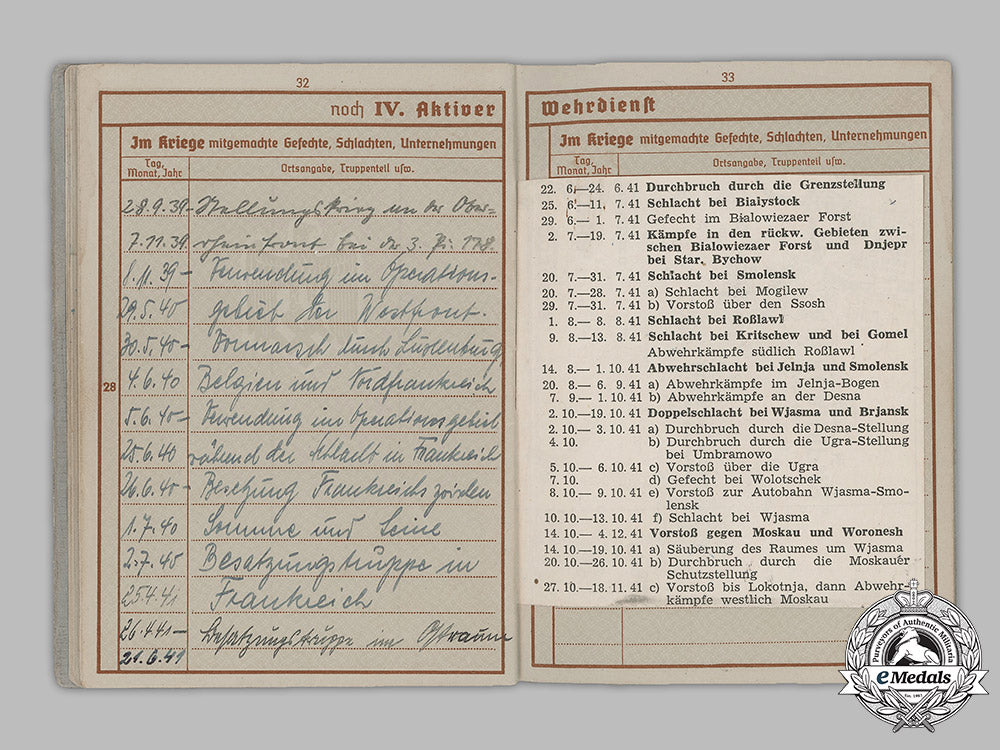 32
noch IV. Aktiver
Im Kriege mitgemachte Gefechte, Schlachten, Unternehmungen
Tag, Monat, Jahr
Ortsangabe, Truppenteil usw.
28
28.9.39 – Stellungskrieg an der Ober-
7.11.39 rheinfront bei der 3.
8.11.39 – Verwendung im Operations-
29.5.40 gebiet der Westfront.
30.5.40 – Vormarsch durch Luxemburg
4.6.40 Belgien und Nordfrankreich
5.6.40 – Verwendung im Operationsgebiet
25.6.40 während der Schlacht in Frankreich
26.6.40 – Besetzung Frankreichs zwischen
1.7.40 Somme und Seine
2.7.40 Besatzungstruppe in
25.4.41 Frankreich
26.4.41 – Besatzungstruppe im Ostraume
21.6.41
33
Wehrdienst
Im Kriege mitgemachte Gefechte, Schlachten, Unternehmungen
Tag, Monat, Jahr
Ortsangabe, Truppenteil usw.
22. 6.—24. 6.41 Durchbruch durch die Grenzstellung
25. 6.—11. 7.41 Schlacht bei Bialystock
29. 6.— 1. 7.41 Gefecht im Bialowiezaer Forst
2. 7.—19. 7.41 Kämpfe in den rückw. Gebieten zwi-
schen Bialowiezaer Forst und Dnjepr
bei Star. Bychow
20. 7.—31. 7.41 Schlacht bei Smolensk
20. 7.—28. 7.41 a) Schlacht bei Mogilew
29. 7.—31. 7.41 b) Vorstoß über den Ssosh
1. 8.— 8. 8.41 Schlacht bei Roßlawl
9. 8.—13. 8.41 Schlacht bei Kritschew und bei Gomel
Abwehrkämpfe südlich Roßlawl
14. 8.— 1.10.41 Abwehrschlacht bei Jelnja und Smolensk
20. 8.— 6. 9.41 a) Abwehrkämpfe im Jelnja-Bogen
7. 9.— 1.10.41 b) Abwehrkämpfe an der Desna
2.10.—19.10.41 Doppelschlacht bei Wjasma und Brjansk
2.10.— 3.10.41 a) Durchbruch durch die Desna-Stellung
4.10. b) Durchbruch durch die Ugra-Stellung
bei Umbramowo
5.10.— 6.10.41 c) Vorstoß über die Ugra
7.10. d) Gefecht bei Wolotschek
8.10.— 9.10.41 e) Vorstoß zur Autobahn Wjasma-Smo-
lensk
10.10.—13.10.41 f) Schlacht bei Wjasma
14.10.— 4.12.41 Vorstoß gegen Moskau und Woronesh
14.10.—19.10.41 a) Säuberung des Raumes um Wjasma
20.10.—26.10.41 b) Durchbruch durch die Moskauer
Schutzstellung
27.10.—18.11.41 c) Vorstoß bis Lokotnja, dann Abwehr-
kämpfe westlich Moskau
Purveyors of Authentic Militaria
eMedals